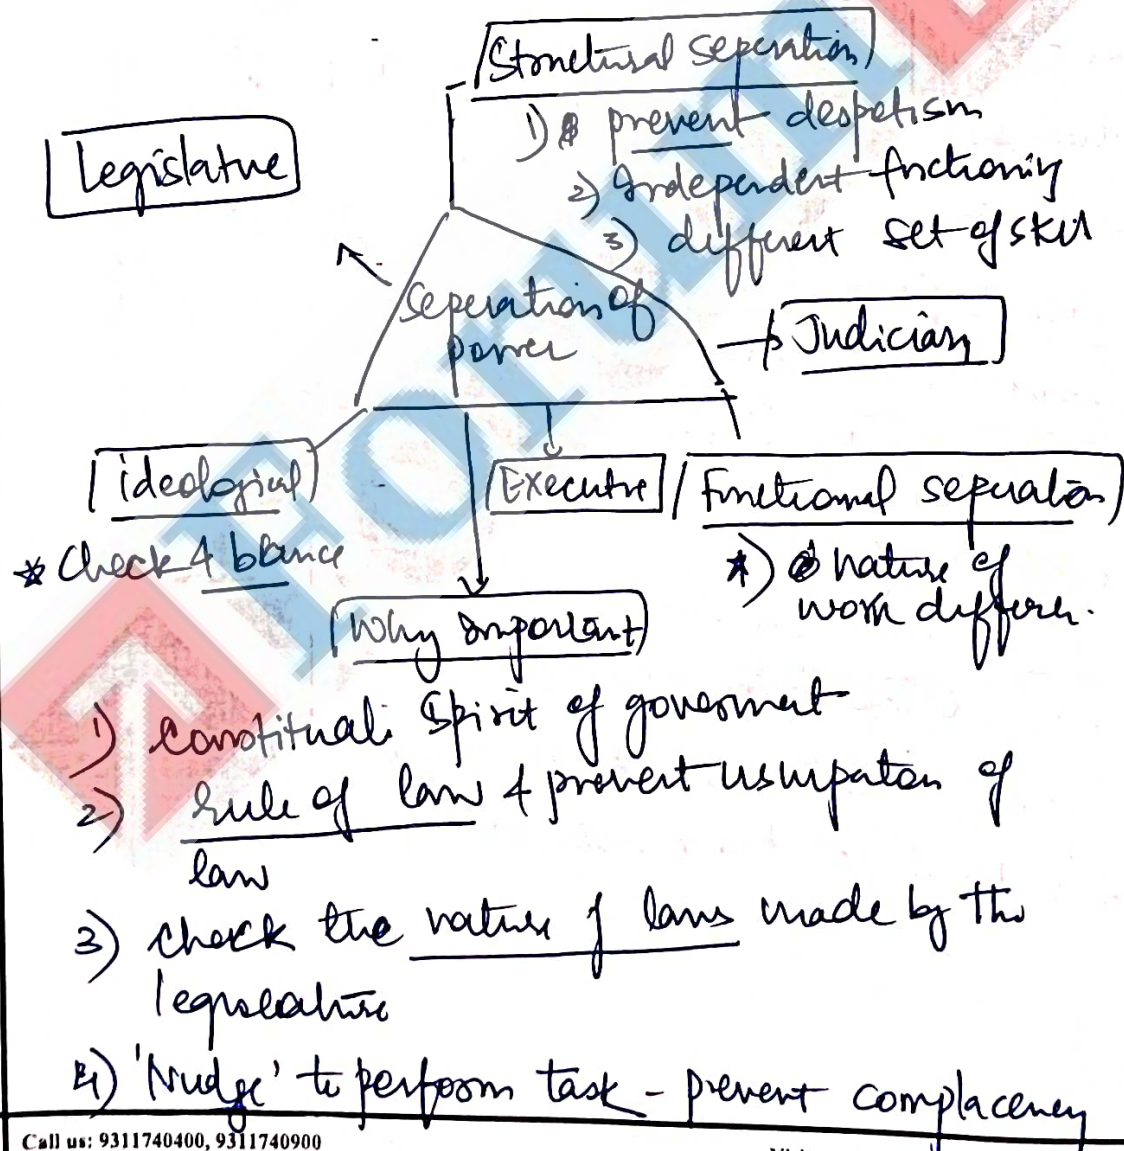 Structural seperation
1) prevent despotism
2) Independent functioning
3) different set of skill
Legislature
Seperation of
power
Judiciary
ideological
* Check & blance
Executive
Functional seperation
*) nature of
work differen.
Why important
1) Constitunal. Spirit of government
2) Rule of law & prevent usurpation of
law
3) check the nature of laws made by the
legislature
4) 'Nudge' to perform task - prevent complacency
Call us: 9311740400, 9311740900